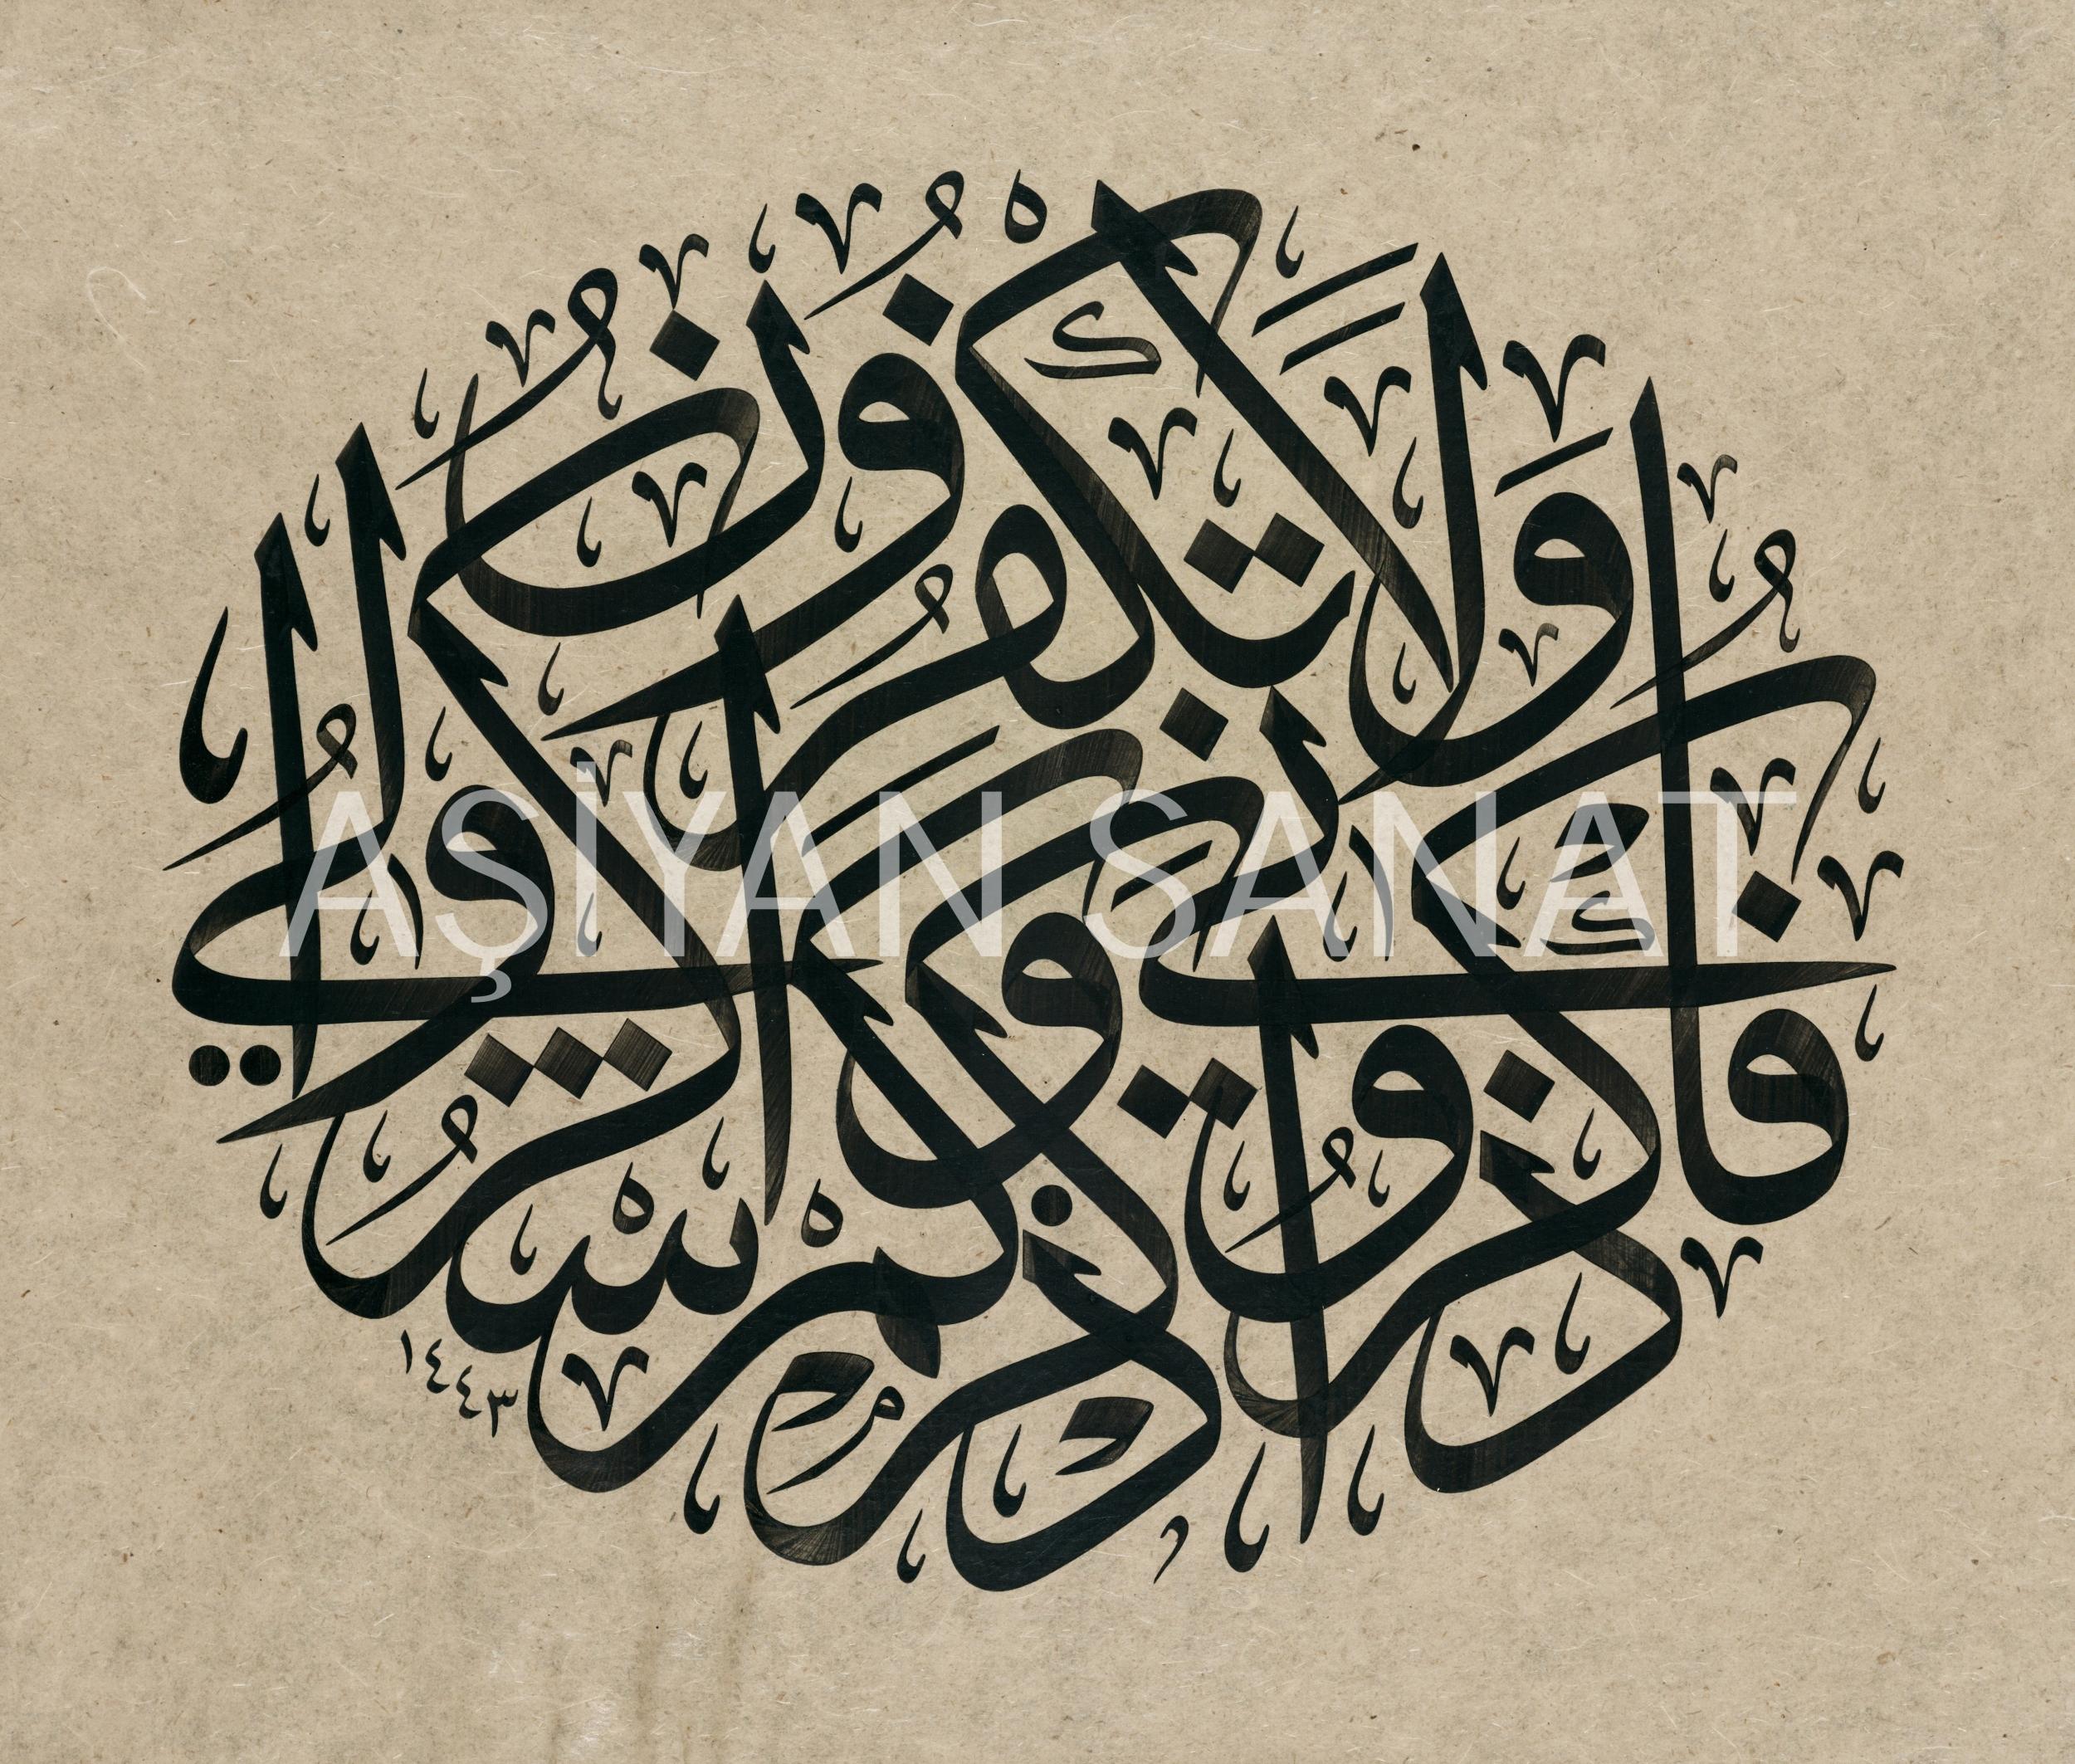 فَاذْكُرُونِي أَذْكُرْكُمْ وَاشْكُرُوا لِي وَلَا تَكْفُرُونِ
١٤٤٣
AŞİYAN SANAT